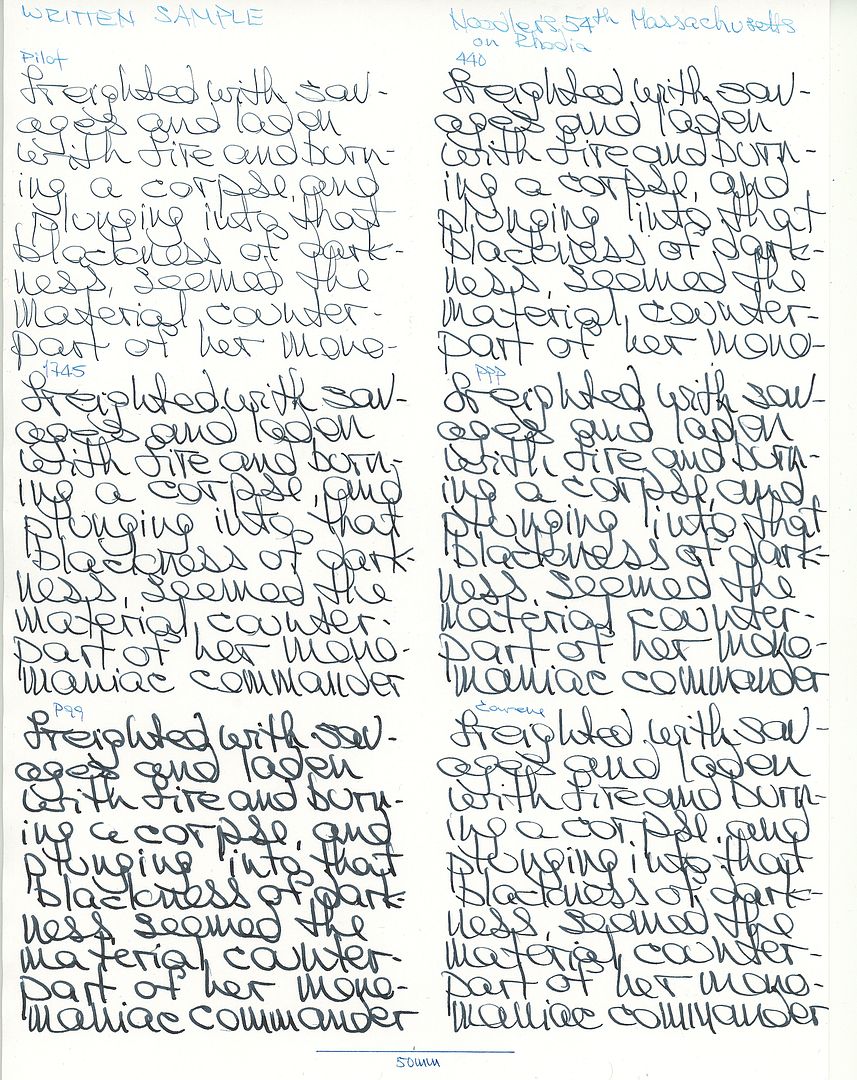 WRITTEN SAMPLE
Noodlers 54th Massachusetts
on Rhodia
Pilot
freighted with sav-
ages and laden
with fire and burn-
ing a corpse, and
plunging into that
blackness of dark-
ness, seemed the
material counter-
part of her mono-
1745
freighted with sav-
ages and laden
with fire and burn-
ing a corpse, and
plunging into that
blackness of dark-
ness, seemed the
material counter-
part of her mono-
maniac commander
P99
freighted with sav-
ages and laden
with fire and burn-
ing a corpse, and
plunging into that
blackness of dark-
ness seemed the
material counter-
part of her mono-
maniac commander
440
freighted with sav-
ages and laden
with fire and burn-
ing a corpse, and
plunging into that
blackness of dark-
ness, seemed the
material counter-
part of her mono-
PPP
freighted with sav-
ages and laden
with fire and burn-
ing a corpse, and
plunging into that
blackness of dark-
ness seemed the
material counter-
part of her mono-
maniac commander
Carene
freighted with sav-
ages and laden
with fire and burn-
ing a corpse, and
plunging into that
blackness of dark-
ness, seemed the
material counter-
part of her mono-
maniac commander
50mm